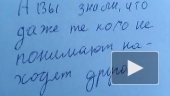 А вы знали, что
даже те кого не
понимают на-
ходят друго